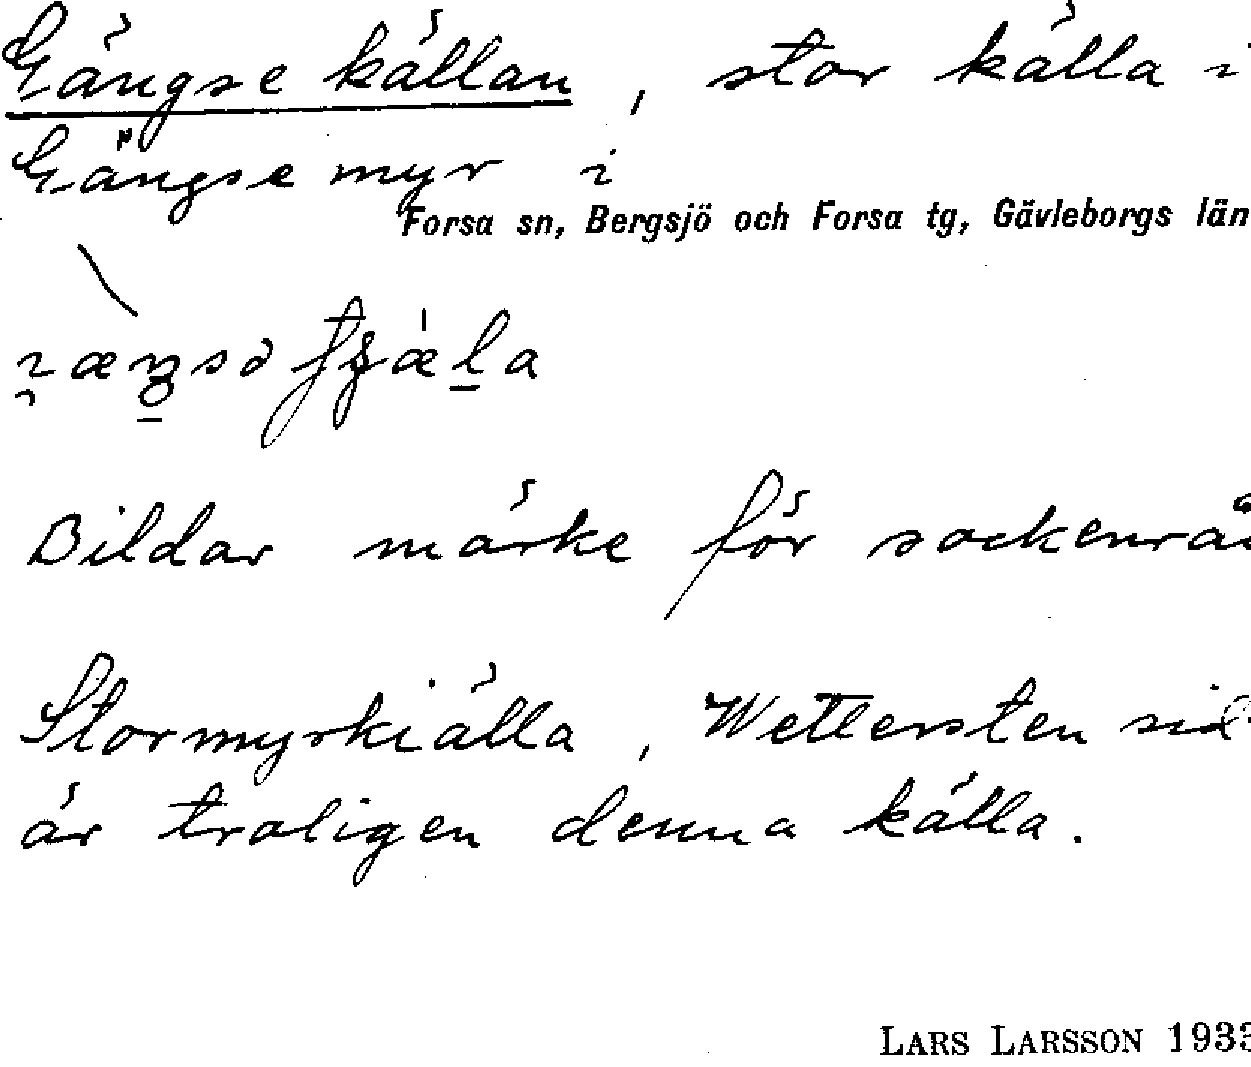 Gängse källan, stor källa i
Gängse myr i
Forsa sn, Bergsjö och Forsa tg, Gävleborgs län
Bildar märke för
Stormyrkiälla, Wettersten
är troligen denna källa.
LARS LARSSON